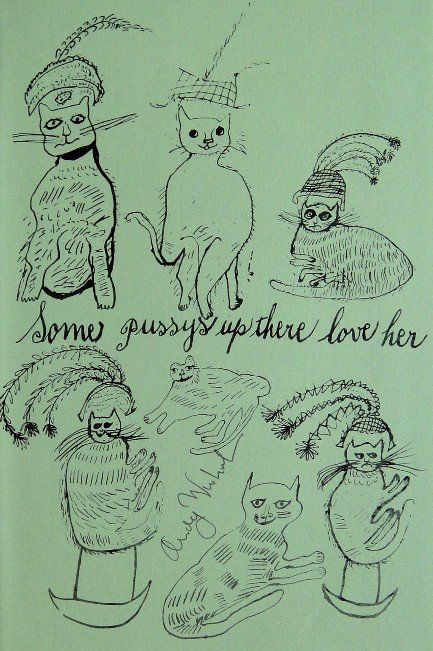 Some pussys up there love her
Andy Warhol